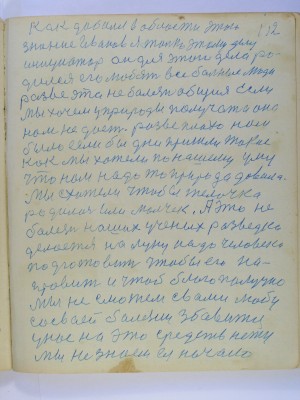 как добался в области этого 112
знание Иванов я только этому делу
инициатор он для этого дела ро-
дился его любят все больные люди
разве это не болезнь общия если
мы хочем у природы получать а она
нам не дает. разве плохо нам
было если бы дни пришли такие
как мы хотели по нашему уму
что нам надо то природа давала.
Мы схотели чтобы телочка
родилас или малчек. А это не
болезн наших ученых разведка
делается на луну надо человека
подготовить чтобы его на-
править и чтоб благополучно
Мы не сможем с вами любу
со своей болезни збавится
у нас на это средств нету
Мы не знаем ея начало